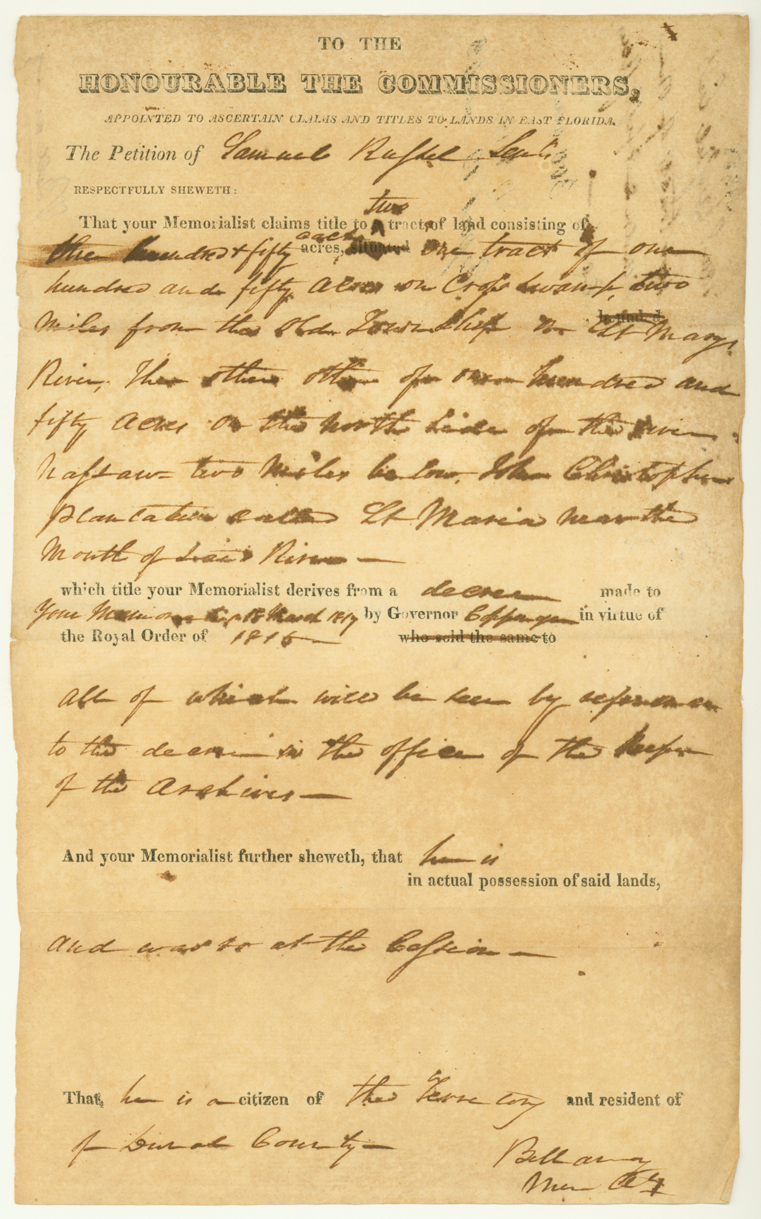 TO THE
HONOURABLE THE COMMISSIONERS,
APPOINTED TO ASCERTAIN CLAIMS AND TITLES TO LANDS IN EAST FLORIDA.
The Petition of Samuel Russel
RESPECTFULLY SHEWETH:
two
That your Memorialist claims title to tract of land consisting of
hundred & fifty acres, each situated One tract of one
hundred and fifty acres on Swamp, two
bounded
Miles from the Old Township on St Marys
River, The other of one hundred and
fifty Acres on the North Side of the river
Nassaw two Miles below John Christophers
plantation called St Maria near the
Mouth of said River —
which title your Memorialist derives from a decree made to
Your Memorialist 18 March 1817 by Governor Coppinger in virtue of
the Royal Order of 1815 — who sold the same to
all of which will be seen by reference
to the decree in the office of the keeper
of the Archives —
And your Memorialist further sheweth, that he is
in actual possession of said lands,
and was so at the Cession —
That, he is a citizen of the Territory and resident of
of Duval County —
Bellamy